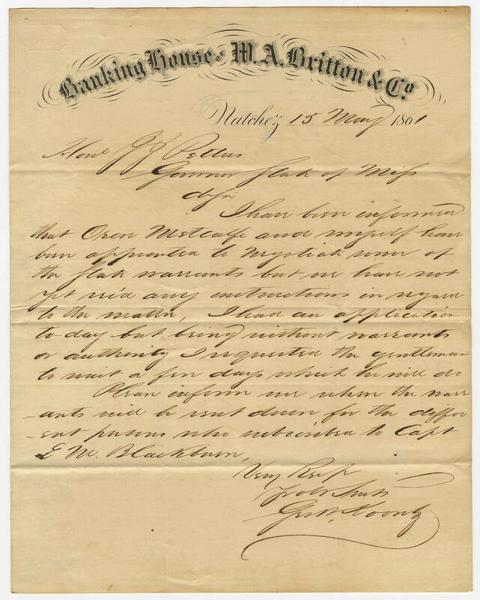 Banking House of W. A. Britton & Co.
Natchez, 15 May 1861
Honl J J Pettus
Governor State of Miss
I have been informed
that Oren Metcalfe and myself have
been appointed to negotiate some of
the State warrants but we have not
yet rec'd any instructions in regard
to the matter, I had an application
to day but being without warrants
or authority I requested the gentleman
to wait a few days which he will do
Please inform me when the warr
-ants will be sent down for the differ
-ent persons who subscribed to Capt
E M. Blackburn,
Very Resp
Yr Obt Svt
Geo W. Koontz